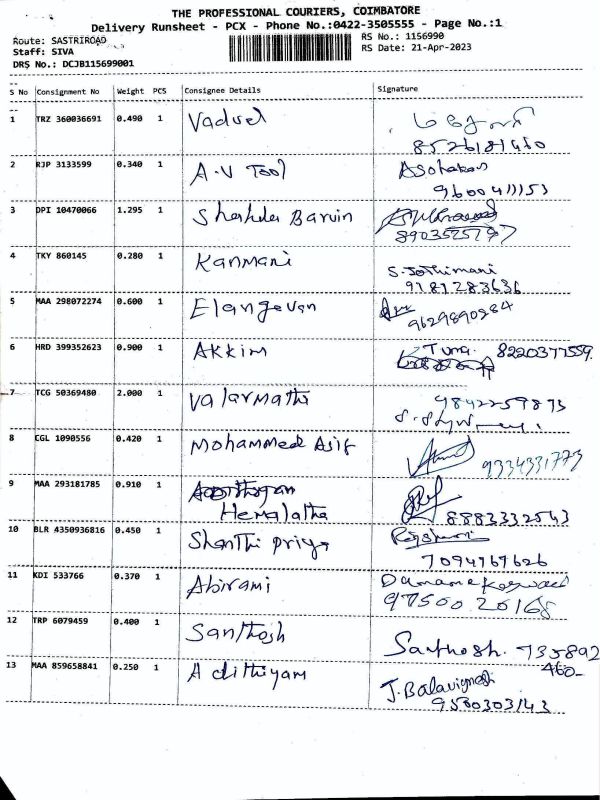 THE PROFESSIONAL COURIERS, COIMBATORE
Delivery Runsheet - PCX - Phone No.:0422-3505555 - Page No.:1
Route: SASTRIROAD
Staff: SIVA
DRS No.: DCJB115699001
RS No.: 1156990
RS Date: 21-Apr-2023
S No Consignment No Weight PCS Consignee Details Signature
1 TRZ 360036691 0.490 1 Vadivel
8526181460
2 RJP 3133599 0.340 1 A.V Tool Asohakan
9600411153
3 DPI 10470066 1.295 1 Shahila Barvin
8903525797
4 TKY 860145 0.280 1 Kanmani S. Jothimani
9787283636
5 MAA 298072274 0.600 1 Elangevan
9629890284
6 HRD 399352623 0.900 1 Akkim 8220377559
7 TCG 50369480 2.000 1 Valarmathi 9842259873
8 CGL 1090556 0.420 1 Mohammed Asif 9334331773
9 MAA 293181785 0.910 1
Hemalatha 8883332543
10 BLR 4350936816 0.450 1 Shanthi priya
7094767626
11 KDI 533766 0.370 1 Abirami
97500 20168
12 TRP 6079459 0.400 1 Santhosh Santhosh. 735892
460
13 MAA 859658841 0.250 1 Adithiyam J. Balavignesh
9500303143